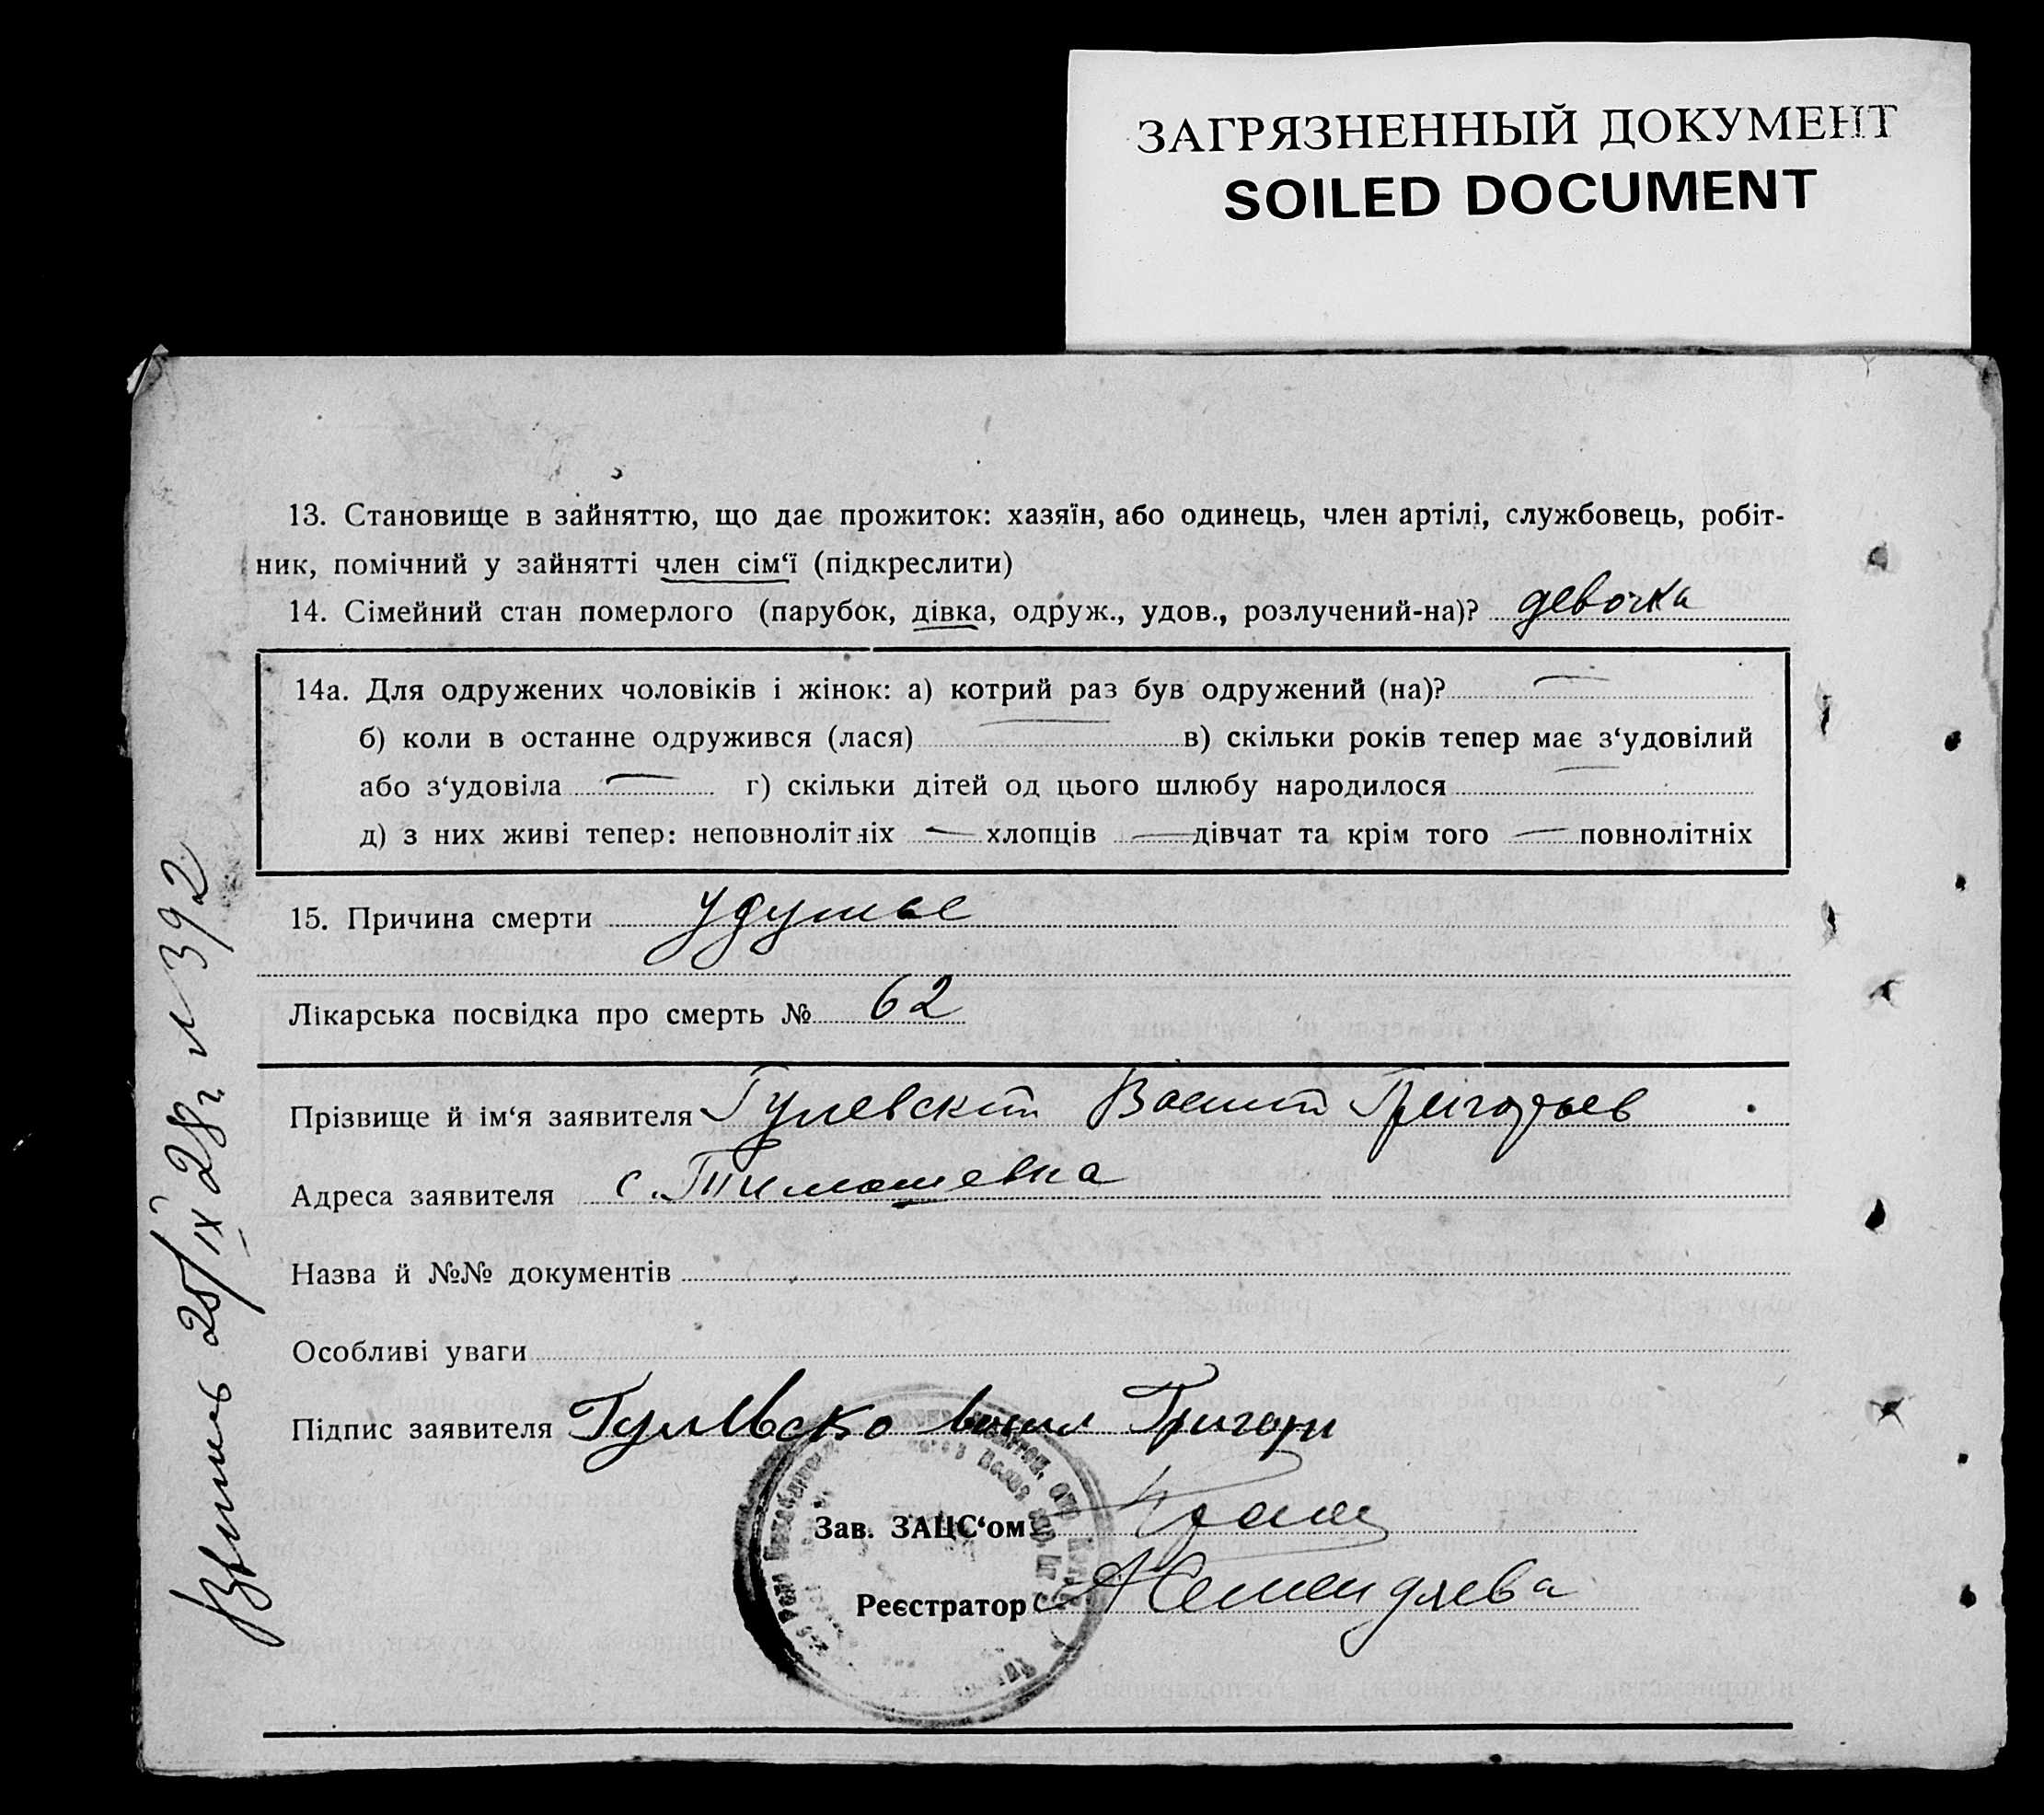 ЗАГРЯЗНЕННЫЙ ДОКУМЕНТ
SOILED DOCUMENT
13. Становище в зайняттю, що дає прожиток: хазяїн, або одинець, член артілі, службовець, робіт-
ник, помічний у зайнятті член сім‘ї (підкреслити)
14. Сімейний стан померлого (парубок, дівка, одруж., удов., розлучений-на)? девочка
14а. Для одружених чоловіків і жінок: а) котрий раз був одружений (на)?
б) коли в останнє одружився (лася) в) скільки років тепер має з‘удовілий
або з‘удовіла г) скільки дітей од цього шлюбу народилося
д) з них живі тепер: неповнолітніх — хлопців — дівчат та крім того — повнолітніх
15. Причина смерти удушье
Лікарська посвідка про смерть № 62
Прізвище й ім‘я заявителя Гулевский Григорьев
Адреса заявителя с. Тимошевка
Назва й №№ документів
Особливі уваги
Підпис заявителя Григори
Зав. ЗАЦС‘ом
Реєстратор
25/IX 28 г. № 392